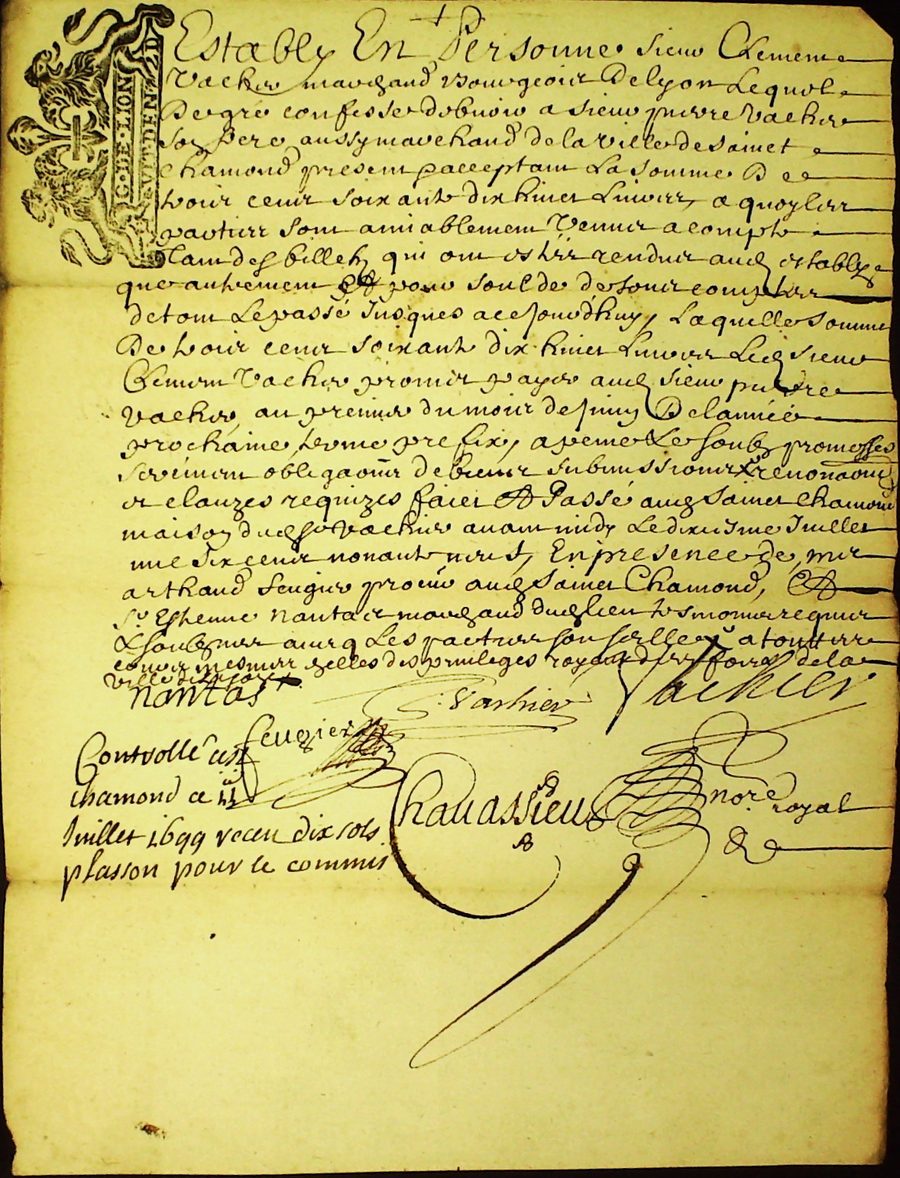 G. DE LION
HUIT DEN
Estably En Personne sieur Clement
Vachier marchand Bourgeois De lyon Lequel
De gré confesse debvoir a sieur pierre Vachier
son Pere aussy marchand de la Ville de sainct
chamond present & acceptant La somme De
trois cens soixante dix huict Livres, a quoy les
parties sont amiablement Venues a compte
Tant des billetz qui ont estés rendus aud estably
que autrement Et pour soulde de tous comptes
de tout Le passé Jusques a ce Jourdhuy, Laquelle somme
De trois cens soixante dix huict Livres Led sieur
Clement Vachier promet payer aud sieur pierre
Vachier, au premier du mois de juin De lannée
prochaine, terme prefix, a peine &c soubz promesses
serement obligaons de biens submissions renonaons
et clauzes requizes faict Et Passé aud Sainct Chamond
maison dud sr Vachier avant midy Le dixiesme Juillet
mil six cens nonante neuf, En presence de mre
arthaud feugier procur aud Sainct Chamond, Et
sr Estienne nantas marchand dud lieu tesmoins requis
& soubsignes avecq Les parties
celles des privileges royaux des foires de la
ville de lyon
nantas
C. Vachier
Vachier
feugier
Controllé a St
chamond ce 11
Juillet 1699 receu dix sols
plasson pour le commis
Chavassieu
nore royal